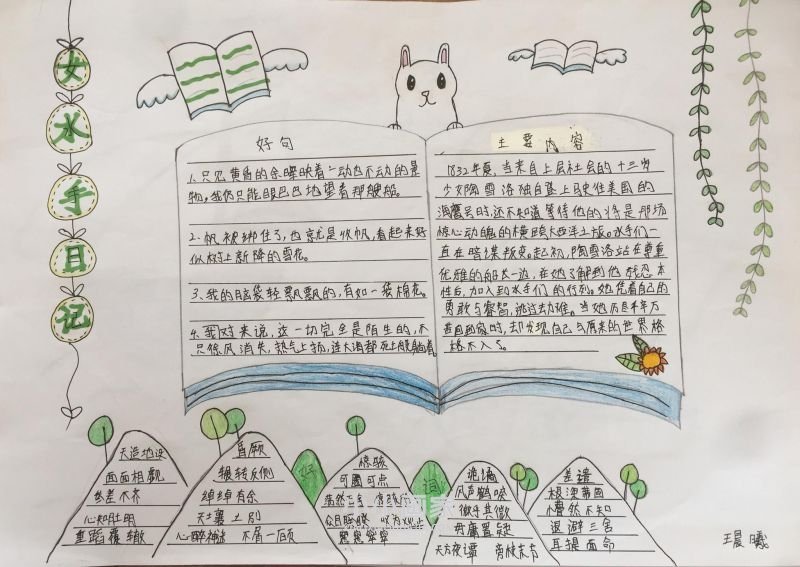 女水手日记
好句
1.只见黄昏的余曝映着一动也不动的景
物,我们只能眼巴巴地望着那艘船。
2.帆被绑住了,也就是收帆,看起来好
似树上新降的雪花。
3.我的脑袋轻飘飘的,有如一袋棉花。
4.我对来说,这一切完全是陌生的,不
只徐风消失,热气上扬,连大海都死一般躺着。
主要内容
1832年夏,当来自上层社会的十三岁
少女陶雪洛独自登上驶往美国的
海鹰号时,还不知道等待他的将是那场
惊心动魄的横跨大西洋之旅。水手们一
直在暗谋叛变。起初,陶雪洛站在尊重
优雅的船长一边,在她了解到他残忍本
性后,加入到水手们的行列。她凭着自己的
勇敢与睿智,逃过劫难。当她历尽千辛万
苦回到家时,却发现自己与原来的世界格
格不入了。
好
词
天造地设
面面相觑
参差不齐
心知肚明
重蹈覆辙
盲顾
辗转反侧
绰绰有余
天壤之别
心醉神迷 不屑一顾
惊骇
可圈可点
众目睽睽
窸窸窣窣
诡谲
风声鹤唳
微乎其微
毋庸置疑
天方夜谭
差遣
极深莆田
懵然不知
退避三舍
耳提面命
王晨曦